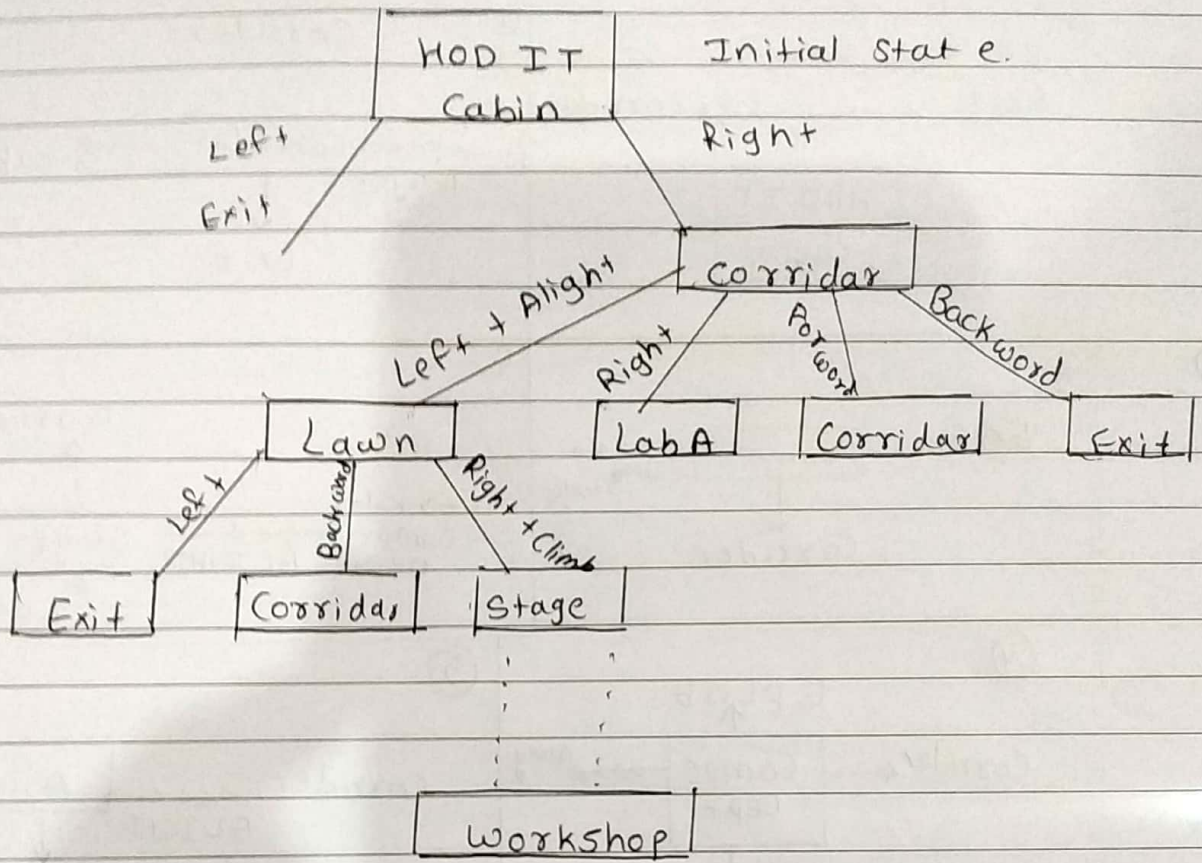 HOD IT Initial state.
Cabin
Left Right
Exit
Corridar
Left + Alight Right Forword Backword
Lawn Lab A Corridar Exit
Left Backword Right + Climb
Exit Corridas Stage
Workshop